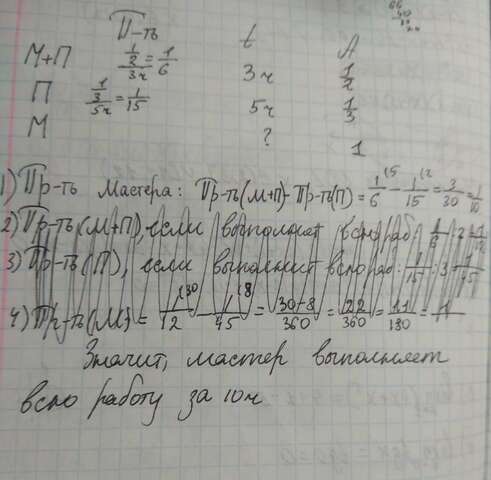 П-ть t A
М+П 1/2 / 3ч = 1/6 3ч 1/2
П 1/3 / 5ч = 1/15 5ч 1/3
М ? 1
1) Пр-ть Мастера: Пр-ть(М+П)-Пр-ть(П) = 1/6 - 1/15 = 3/30 = 1/10
2) Пр-ть(М+П), если выполнят всю раб: 1/6 : 2 = 1/12
3) Пр-ть(П), если выполнит всю раб: 1/15 : 3 = 1/45
4) Пр-ть(М) = 1/12 - 1/45 = 30-8/360 = 22/360 = 11/180 =
Значит, мастер выполняет
всю работу за 10ч